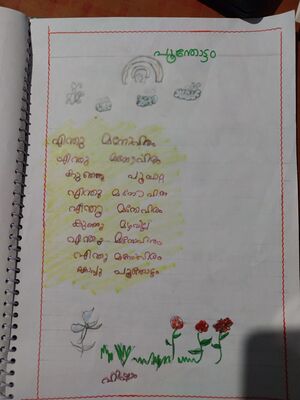 പൂന്തോട്ടം
എന്തു മനോഹരം
എന്തു മനോഹരം
കുഞ്ഞു പൂമ്പാറ്റ
എന്തു മനോഹരം
എന്തു മനോഹരം
കുഞ്ഞു മഴവില്ല്
എന്തു മനോഹരം
എന്തു മനോഹരം
പൂന്തോട്ടം